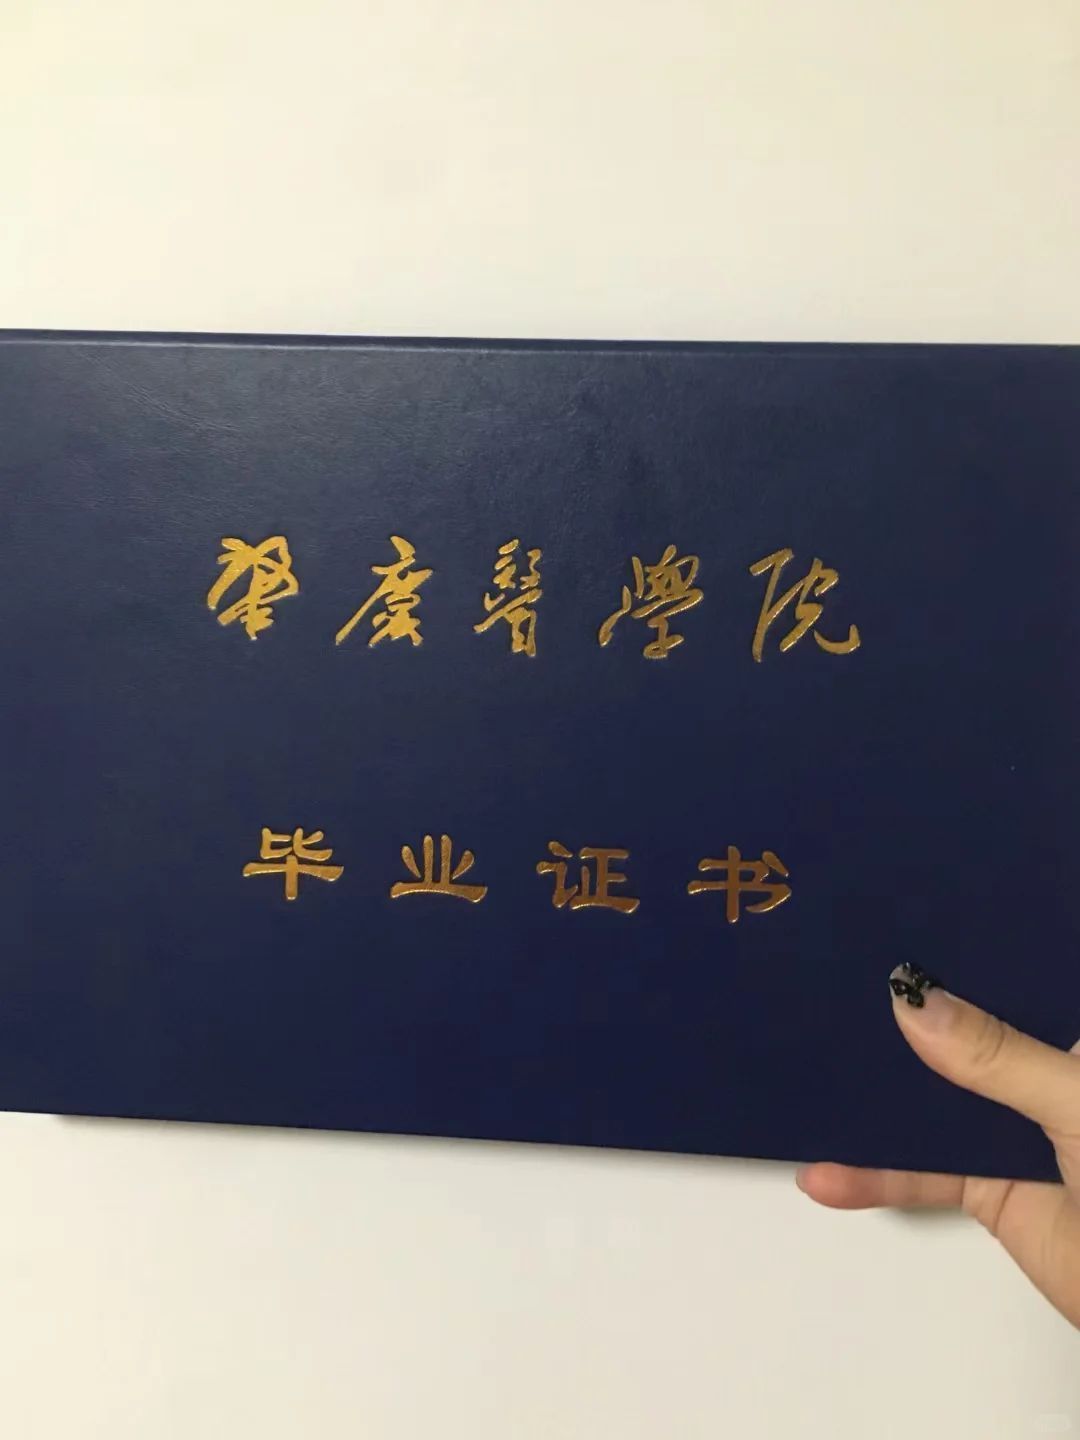 肇慶醫學院
毕业证书